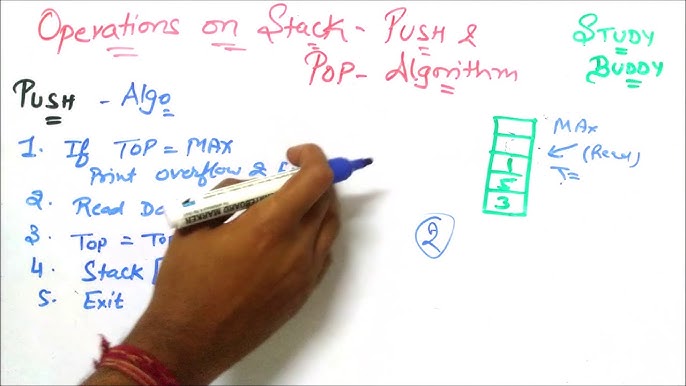 Operations on Stack - PUSH &
POP - Algorithm
STUDY
BUDDY
PUSH - Algo
1. If TOP = MAX
Print overflow &
2. Read
3. TOP =
4. Stack [
5. Exit
MAX
1
5
3
T=
2